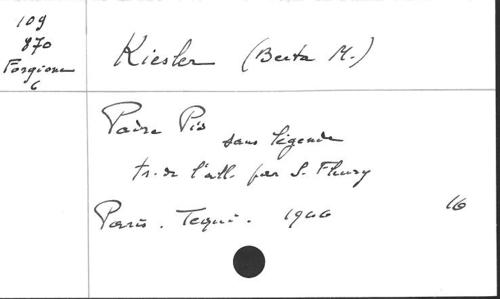 109
870
Forgione
6
Kiesler (Berta M.)
Padre Pio
sans légende
tr. de l'all. par S. Fleury
Paris. Tequi. 1966 16